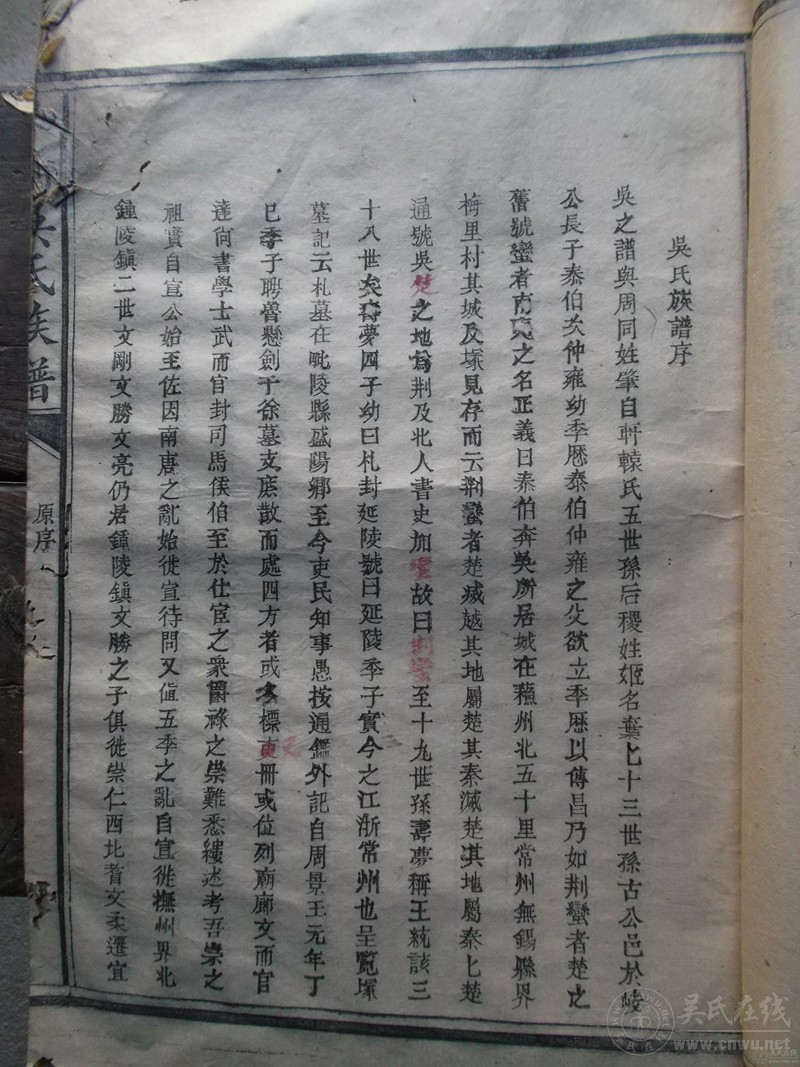 吳氏族譜序
吳之譜與周同姓肇自軒轅氏五世孫后稷姓姬名棄七十三世孫古公邑於岐
公長子泰伯次仲雍幼季歷泰伯仲雍之父欲立季歷以傳昌乃如荆蠻者楚之
舊號蠻者南 之名正義曰泰伯奔吳所居城在蘓州北五十里常州無錫縣界
梅里村其城及塚見存而云荆蠻者楚滅越其地屬楚其秦滅楚淇地屬秦匕楚
通號吳楚之地為荆及北人書史加蠻故曰荆蠻至十九世孫壽夢稱王統該三
十八世矣壽夢四子幼曰札封延陵號曰延陵季子實今之江浙常州也呈覽塚
墓記云札墓在毗陵縣盛陽鄉至今吏民知事愚按通鑑外記自周景王元年丁
巳季子聘魯懸劍于徐墓支庶散而處四方者或名標 史冊或位列廟廊文而官
達尚書學士武而官封司馬侯伯至於仕宦之衆爵祿之崇難悉縷述考吾崇之
祖實自宣公始至佐因南唐之亂始徙宣待問又值五季之亂自宜徙撫州界北
鍾陵鎮二世文剛文勝文亮仍居鍾陵鎮文勝之子俱徙崇仁西北耆文柔遷宜
吳氏族譜
原序
吴氏在线
www.cnwu.net